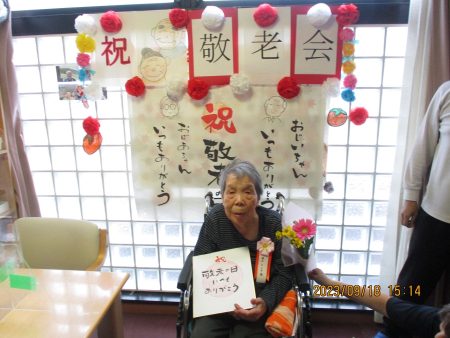 祝
敬老会
おじいちゃん
いつもありがとう
祝
敬老の
おばあちゃん
いつもありがとう
祝
敬老の日
いつも
ありがとう
2023/09/18 15:14